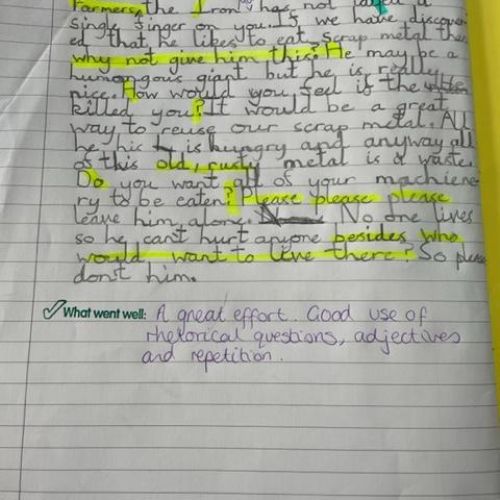 Farmers, the Iron has not a
single finger on you. If we have discover
ed that he likes to eat scrap metal the
why not give him this? He may be a
humongous giant but he is really
nice. How would you feel if the
killed you? It would be a great
way to reuse our scrap metal. All
he is hungry and anyway all
of this old, rusty metal is a waste.
Do you want all of your machiene
ry to be eaten? Please please please
leave him alone. No one lives
so he can't hurt anyone besides who
would want to live there? So pleas
don't him.
What went well: A great effort. Good use of
rhetorical questions, adjectives
and repetition.